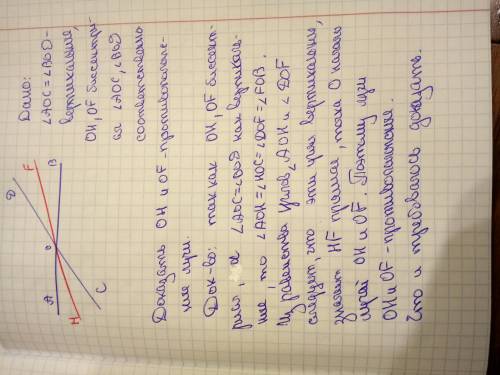 Дано:
∠AOC=∠BOD-
вертикальные,
OH, OF биссектри-
сы ∠AOC, ∠BOD
соответственно
D
F
B
O
A
H
C
Доказать OH и OF-противополож-
ные лучи.
Док-во: так как OH, OF биссект-
рисы, а ∠AOC=∠BOD как вертикаль-
ные, то ∠AOH=∠HOC=∠DOF=∠FOB.
Из равенства углов ∠AOH и ∠DOF
следует, что эти углы вертикальные,
значит HF прямая, точка O начало
лучей OH и OF. Поэтому лучи
OH и OF-противоположные.
Что и требовалось доказать.